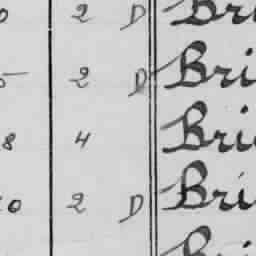 0 2 D Bri
5 2 D Bri
8 4 Bri
0 2 D Bri